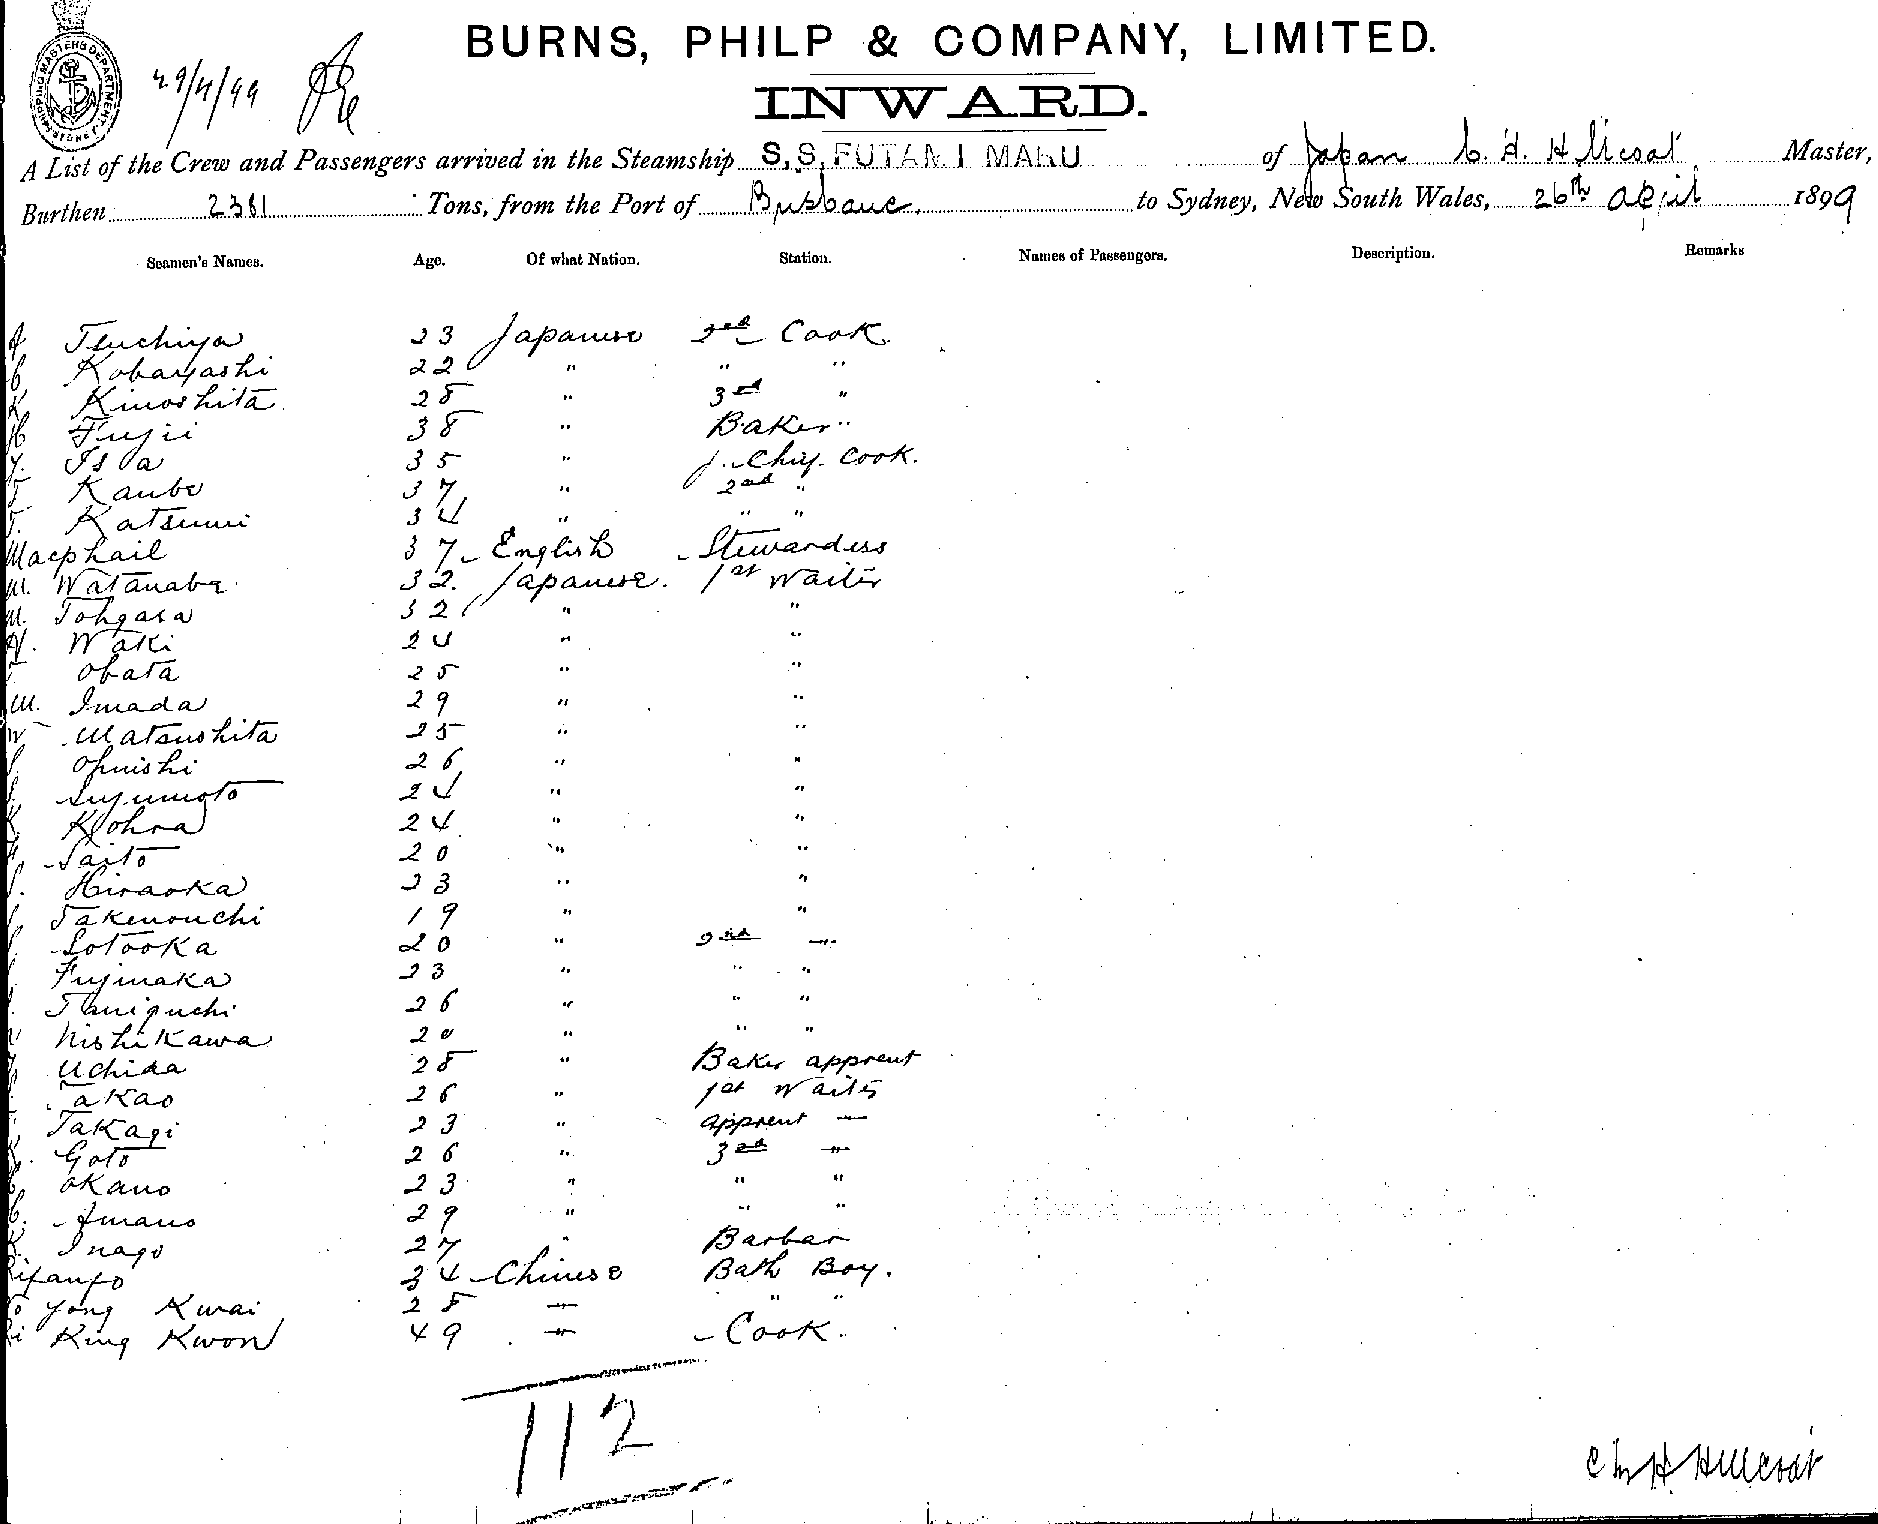 BURNS, PHILP & COMPANY, LIMITED.
INWARD.
29/4/99
A List of the Crew and Passengers arrived in the Steamship S.S. FUTAMI MARU of Japan C. H. Hillcoat Master,
Burthen 2381 Tons, from the Port of Brisbane. to Sydney, New South Wales, 26th April 1899
Seamen's Names. Age. Of what Nation. Station. Names of Passengers. Description. Remarks
Tsuchiya 23 Japanese 2nd Cook
Kobayashi 22 " " "
K Kinoshita 28 " 3rd "
H Fujii 38 " Baker "
Y. Isoa 35 " J. Chif. Cook.
T Kanbe 37 " 2nd "
T. Katsumi 34 " " "
Macphail 37 - English - Stewardess
M. Watanabe 32. Japanese. 1st Waiter
M. Tohgasa 32 " "
N. Waki 24 " "
T Obata 25 " "
M. Imada 29 " "
Matsushita 25 " "
Ohnishi 26 " "
Sugumoto 24 " "
Kohra 24 " "
Saito 20 " "
Hiraoka 23 " "
Takenouchi 19 " "
Sotooka 20 " 2nd "
Fujinaka 23 " " "
Taniguchi 26 " " "
Nishikawa 20 " " "
Uchida 28 " Baker apprent
Takao 26 " 1st Waiter
Takagi 23 " apprent "
Goto 26 " 3rd "
Okano 23 " " "
Amano 29 " " "
Inago 27 " Barbar
34 - Chinese Bath Boy.
Yong Kwai 28 " " "
King Kwon 49 " - Cook.
112
C H Hillcoat